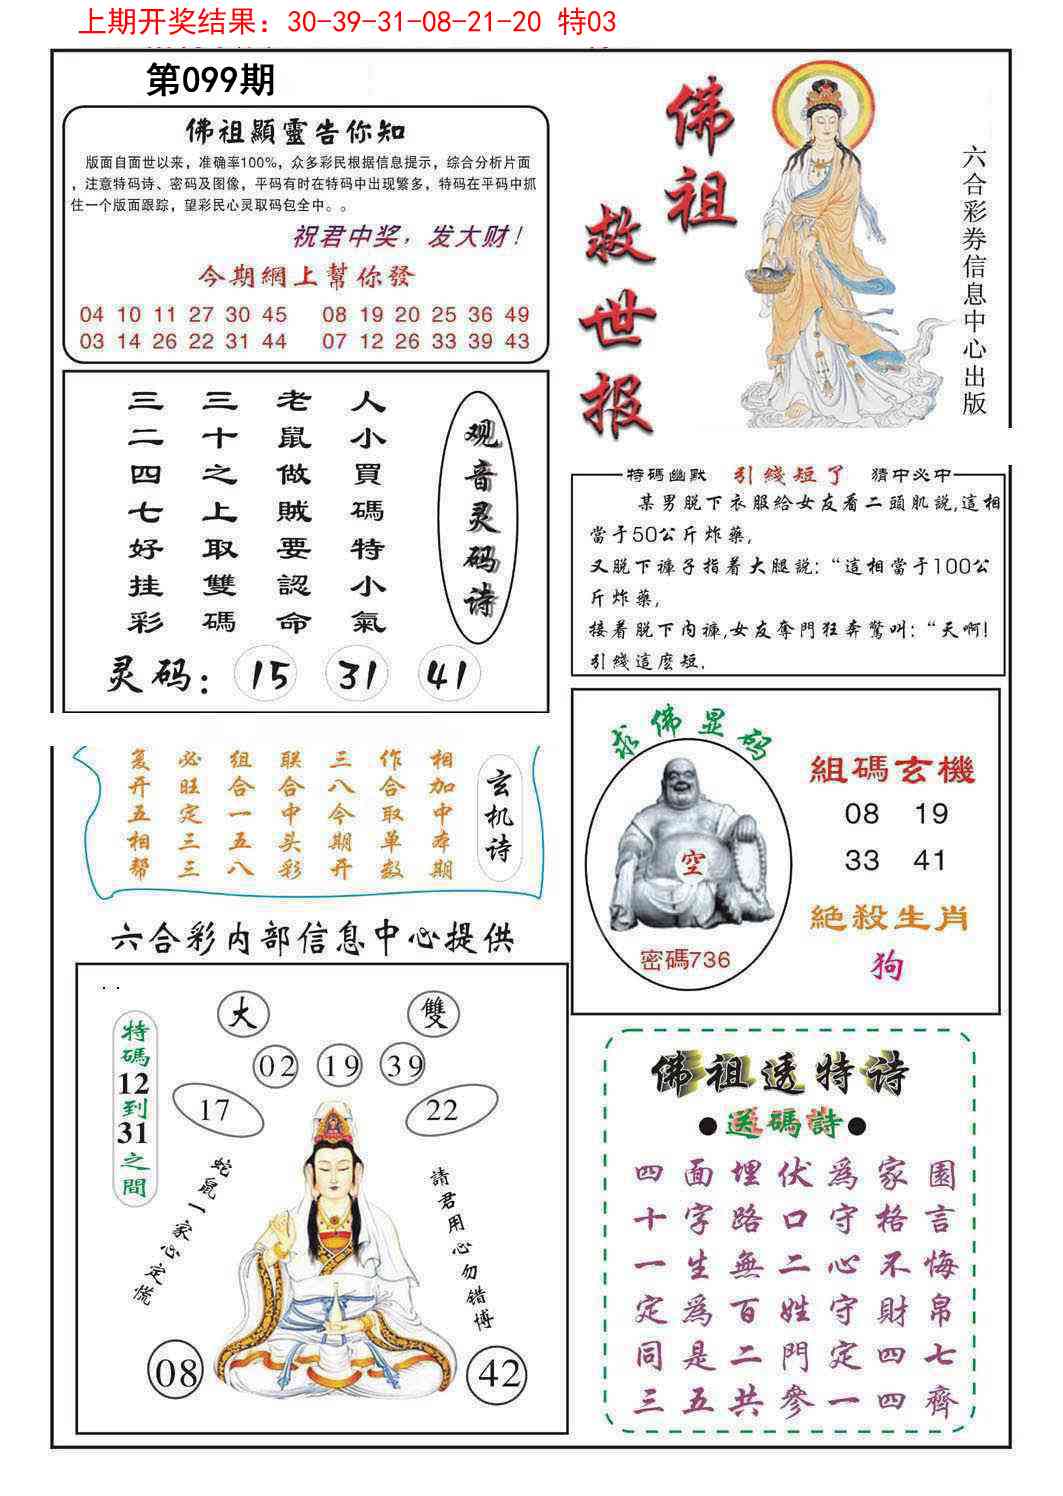 上期开奖结果：30-39-31-08-21-20 特03
第099期
佛祖顯靈告你知
版面自面世以来，准确率100%，众多彩民根据信息提示，综合分析片面
，注意特码诗、密码及图像，平码有时在特码中出现繁多，特码在平码中抓
住一个版面跟踪，望彩民心灵取码包全中。。
祝君中奖，发大财！
今期網上幫你發
04 10 11 27 30 45 08 19 20 25 36 49
03 14 26 22 31 44 07 12 26 33 39 43
佛祖
救世报
六合彩券信息中心出版
观音灵码诗
人小買碼特小氣
老鼠做賊要認命
三十之上取雙碼
三二四七好挂彩
灵码：15 31 41
特碼幽默 引綫短了 猜中必中
某男脱下衣服給女友看二頭肌説,這相
當于50公斤炸藥,
又脱下褲子指着大腿説:“這相當于100公
斤炸藥,
接着脱下内褲,女友奪門狂奔驚叫:“天啊!
引綫這麽短.
玄机诗
相加中本期
作合取单数
三八今期开
联合中头彩
组合一五八
必旺定三三
复开五相帮
求佛显码
空
密碼736
組碼玄機
08 19
33 41
絕殺生肖
狗
六合彩内部信息中心提供
特碼12到31之間
大 雙
02 19 39
17 22
蛇鼠一家心定慌
請君用心勿錯博
08 42
佛祖透特诗
●送碼詩●
四面埋伏爲家園
十字路口守格言
一生無二心不悔
定爲百姓守財帛
同是二門定四七
三五共參一四齊